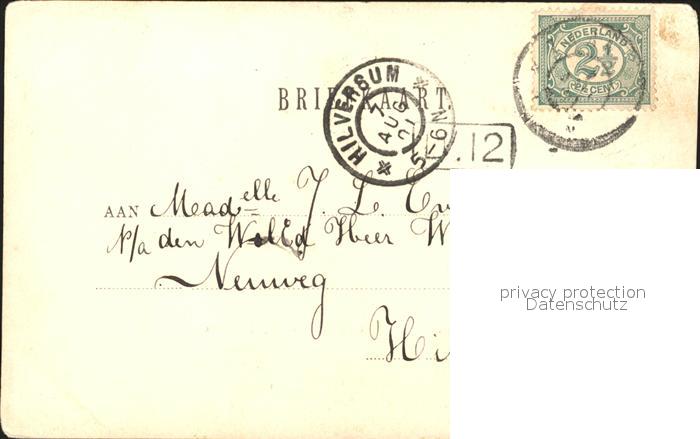 NEDERLAND
2½
2½ CENT
BRIEFKAART
HILVERSUM
7
AUG
5-6N
.12
AAN Mad elle J. L.
p/a den Heer W
Neuweg
Hi
privacy protection
Datenschutz